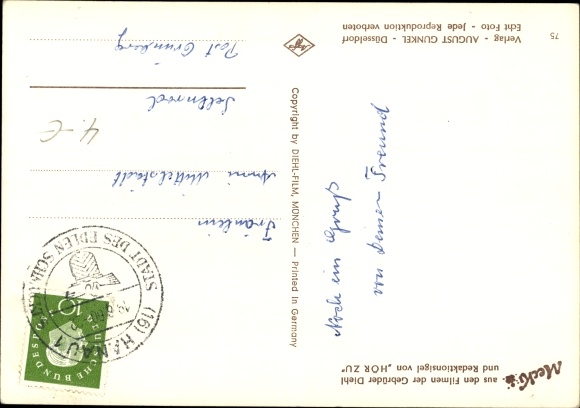 Mecki
aus den Filmen der Gebrüder Diehl
und Redaktionsigel von „HÖR ZU"
Noch ein Gruß
von Deinem Freund
Copyright by DIEHL-FILM, MÜNCHEN — Printed in Germany
(16) HANAU 1
STADT DES EDLEN SCHMUCKES
DEUTSCHE BUNDESPOST
10
Fräulein
Anni Mittelstädt
Selbnrod
Post Grünberg
4.-€
Agfa
Verlag - AUGUST GUNKEL - Düsseldorf
Echt Foto - Jede Reproduktion verboten
75